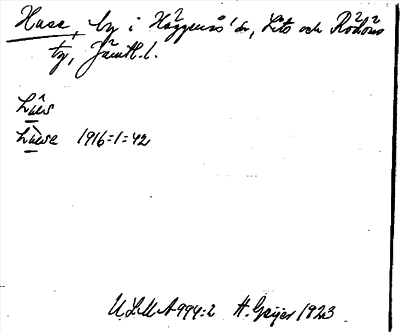 Huse, by i Häggenås' sn, Lits och Rödöns
tg, Jämtl. l.
1916=1=42
ULMA 994:2 H. Geijer 1923